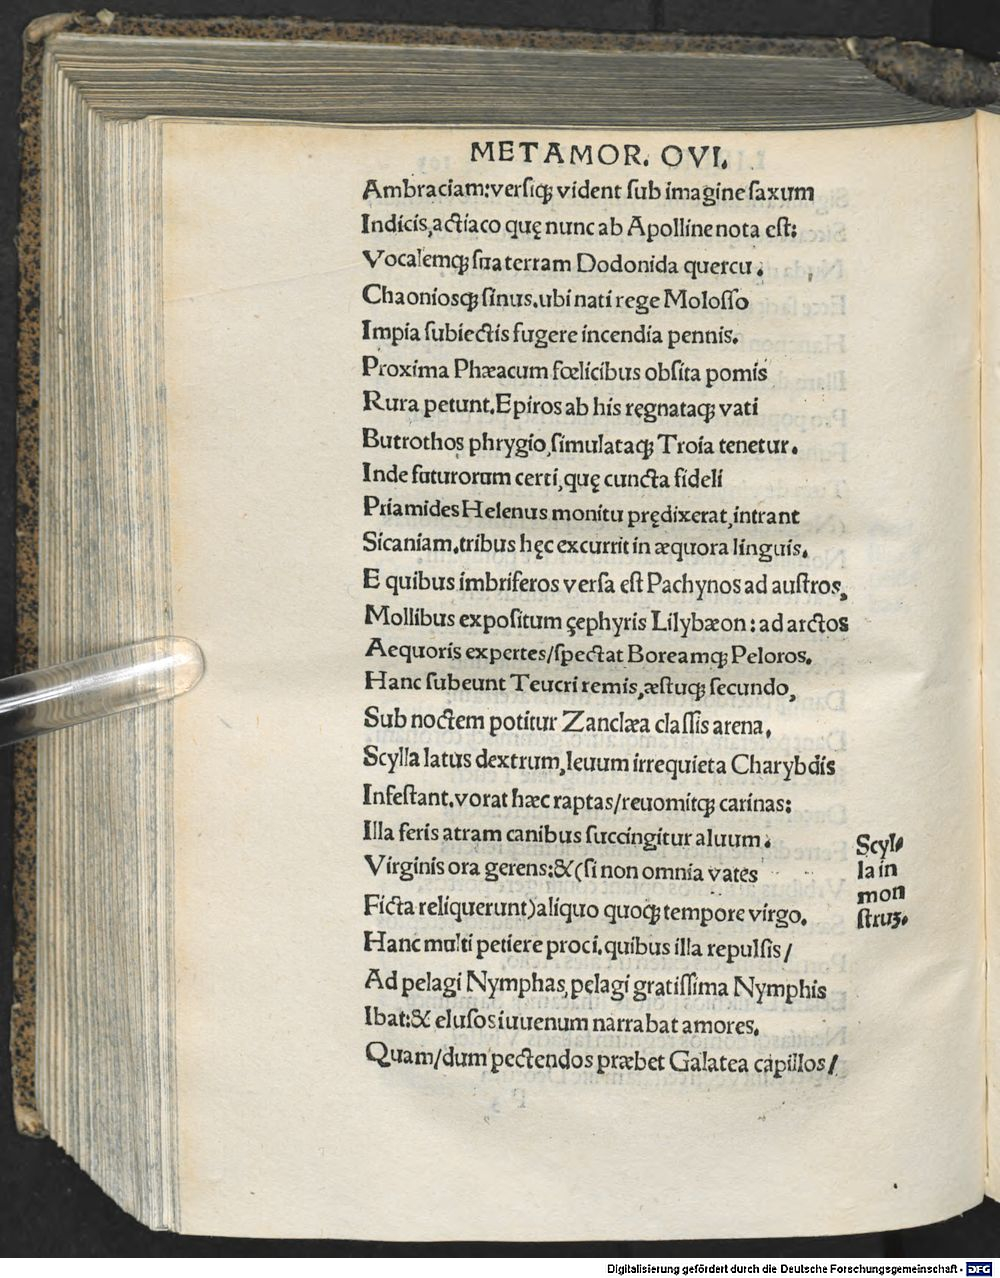 METAMOR. OVI.
Ambraciam:verſiqꝫ vident ſub imagine ſaxum
Indicis,actiaco quę nunc ab Apolline nota eſt:
Vocalemqꝫ ſua terram Dodonida quercu.
Chaoniosqꝫ ſinus.ubi nati rege Moloſſo
Impia ſubiectis fugere incendia pennis.
Proxima Phæacum fœlicibus obſita pomis
Rura petunt.Epiros ab his ręgnataqꝫ vati
Butrothos phrygio,ſimulataqꝫ Troia tenetur.
Inde futurorum certi,quę cuncta fideli
Priamides Helenus monitu prędixerat,intrant
Sicaniam.tribus hęc excurrit in æquora linguis.
E quibus imbriferos verſa eſt Pachynos ad auſtros,
Mollibus expoſitum çephyris Lilybæon:ad arctos
Aequoris expertes/ſpectat Boreamqꝫ Peloros.
Hanc ſubeunt Teucri remis,æſtuqꝫ ſecundo,
Sub noctem potitur Zanclæa claſſis arena.
Scylla latus dextrum,leuum irrequieta Charybdis
Infeſtant.vorat hæc raptas/reuomitqꝫ carinas:
Illa feris atram canibus ſuccingitur aluum.
Virginis ora gerens:&(ſi non omnia vates
Ficta reliquerunt)aliquo quoqꝫ tempore virgo.
Scyl-
la in
mon
ſtruꝫ.
Hanc multi petiere proci.quibus illa repulſis/
Ad pelagi Nymphas,pęlagi gratiſſima Nymphis
Ibat:& eluſos iuuenum narrabat amores.
Quam/dum pectendos præbet Galatea capillos/
Digitalisierung gefördert durch die Deutsche Forschungsgemeinschaft - DFG